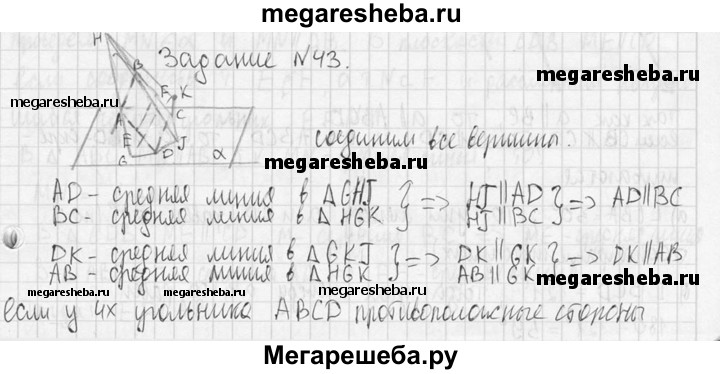 megaresheba.ru
Задание №43.
megaresheba.ru
megaresheba.ru
H
B
F K
A
C
E
J
G
D
α
соединим все вершины.
megaresheba.ru
AD - средняя линия в Δ GHJ } => HJ || AD } => AD || BC
BC - средняя линия в Δ HGK } HJ || BC
DK - средняя линия в Δ GKJ } => DK || GK } => DK || AB
AB - средняя линия в Δ HGK } AB || GK
megaresheba.ru
megaresheba.ru
megaresheba.ru
megaresheba.ru
если у их угольника ABCD противоположные стороны
Мегарешеба.ру